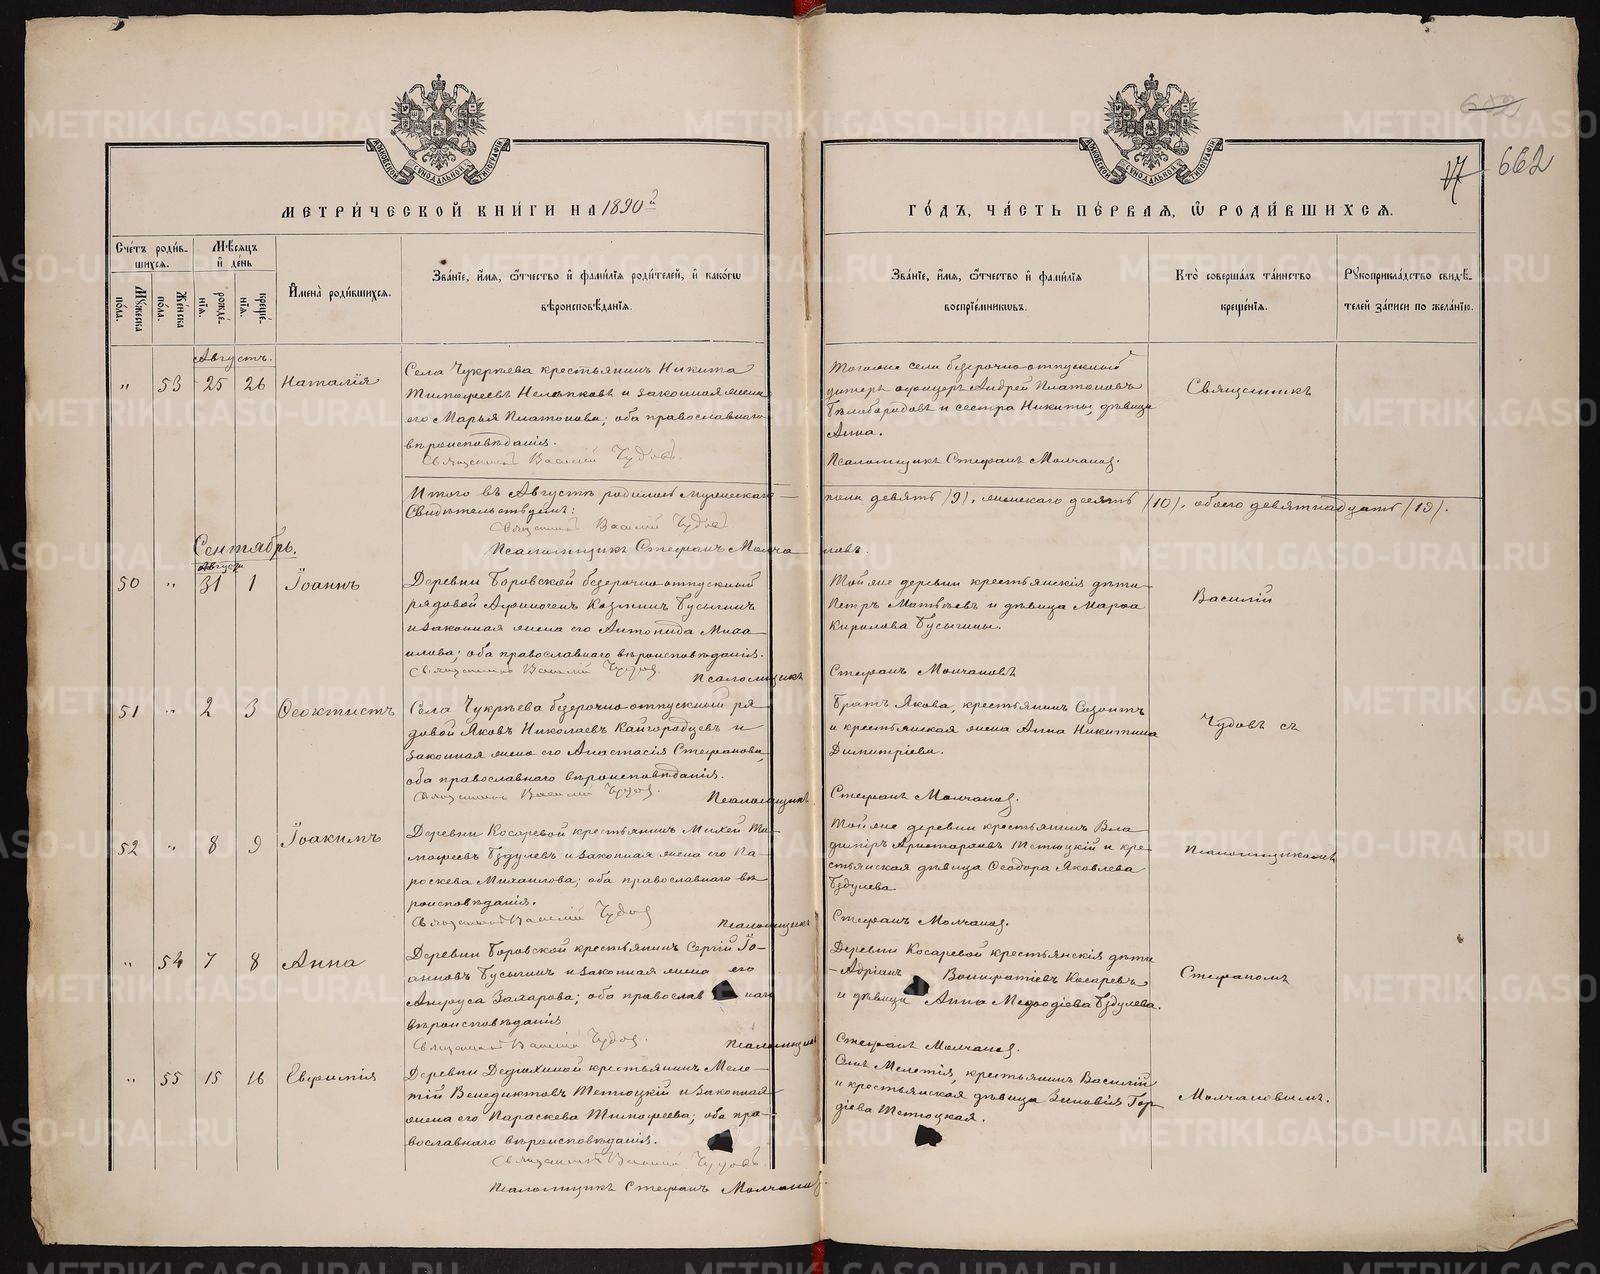 662
17
МЕТРИ́ЧЕСКОЙ КНИ́ГИ НА 1890 й
ГО́ДЪ, ЧА́СТЬ ПЕ́РВАЯ, Ѡ РОДИ́ВШИХСЯ.
Счéтъ роди́вшихся.
Мꙋжеска по́ла.
Же́нска по́ла.
Мѣ́сяцъ и де́нь
рожде́нїя.
креще́нїя.
И҆мена̀ роди́вшихся.
Зва́нїе, и҆́мя, ѻ҆́тчество и҆ фами́лїѧ роди́телей, и҆ како́гѡ
вѣроисповѣ́данїя.
Зва́нїе, и҆́мя, ѻ҆́тчество и҆ фами́лїѧ
воспрїе́мникѡвъ.
Кто̀ соверша́лъ та́инство
креще́нїя.
Рꙋкоприкла́дство свидѣ́-
телей за́писи по жела́нїю.
Августъ.
" 53 25 26 Наталія
Села Чукрѣева крестьянинъ Никита
Тимофеевъ и законная жена
его Марья Платонова; оба православнаго
вѣроисповѣданія.
Священникъ Василій Чудовъ
Тогоже села безсрочно отпускный
унтеръ офицеръ Андрей Платоновъ
Бѣлобородовъ и сестра Никиты, дѣвица
Анна.
Псаломщикъ Стефанъ Молчановъ.
Священникъ
Итого въ Августѣ родилось мужескаго
пола девять /9/, женскаго десять /10/, обоего девятнадцать /19/.
Свидѣтельствуютъ:
Священникъ Василій Чудовъ
Псаломщикъ Стефанъ Молчановъ.
Сентябрь.
Августа
50 " 31 1 Іоаннъ
Деревни Боровской безсрочно отпускный
рядовой Афиногенъ Козминъ Бусыгинъ
и законная жена его Антонида Миха
илова; оба православнаго вѣроисповѣданія.
Священникъ Василій Чудовъ
Псаломщикъ
Той же деревни крестьянскія дѣти
Петръ Матвѣевъ и дѣвица Марѳа
Кирилова Бусыгины.
Стефанъ Молчановъ
Василій
51 " 2 3 Ѳеоктистъ
Села Чукрѣева безсрочно отпускный ря
довой Яковъ Николаевъ Кайгородцевъ и
законная жена его Анастасія Стефанова,
оба православнаго вѣроисповѣданія.
Священникъ Василій Чудовъ.
Псаломщикъ
Братъ Якова, крестьянинъ Созонтъ
и крестьянская жена Анна Никитина
Димитріева.
Стефанъ Молчановъ.
Чудовъ съ
52 " 8 9 Іоакимъ
Деревни Косаревой крестьянинъ Михей Ти-
мофеевъ Бздулевъ и законная жена его Па-
роскева Михаилова; оба православнаго вѣ
роисповѣданія.
Священникъ Василій Чудовъ
Псаломщикъ
Той же деревни крестьянинъ Вла
диміръ Аристарховъ Тетюцкій и кре-
стьянская дѣвица Ѳеодора Яковлева
Бздулева
Стефанъ Молчановъ.
Псаломщикомъ
" 54 7 8 Анна
Деревни Боровской крестьянинъ Сергій Іо-
анновъ Бусыгинъ и законная жена его
Захарова; оба православ наго
вѣроисповѣданія
Священникъ Василій Чудовъ.
Псаломщикъ
Деревни Косаревой крестьянскія дѣти
Адріанъ Вонифатіевъ Косаревъ
и дѣвица Анна Меѳодіева Бздулева.
Стефанъ Молчановъ.
Стефаномъ
" 55 15 16 Евфимія
Деревни Дедюхиной крестьянинъ Меле-
тій Венедиктовъ Тетюцкій и законная
жена его Параскева Тимофеева; оба пра-
вославнаго вѣроисповѣданія.
Священникъ Василій Чудовъ
Псаломщикъ Стефанъ Молчановъ.
Сынъ Мелетія, крестьянинъ Василій
и крестьянская дѣвица Зиновія Гор-
діева Тетюцкая.
Молчановымъ.
METRIKI.GASO-URAL.RU